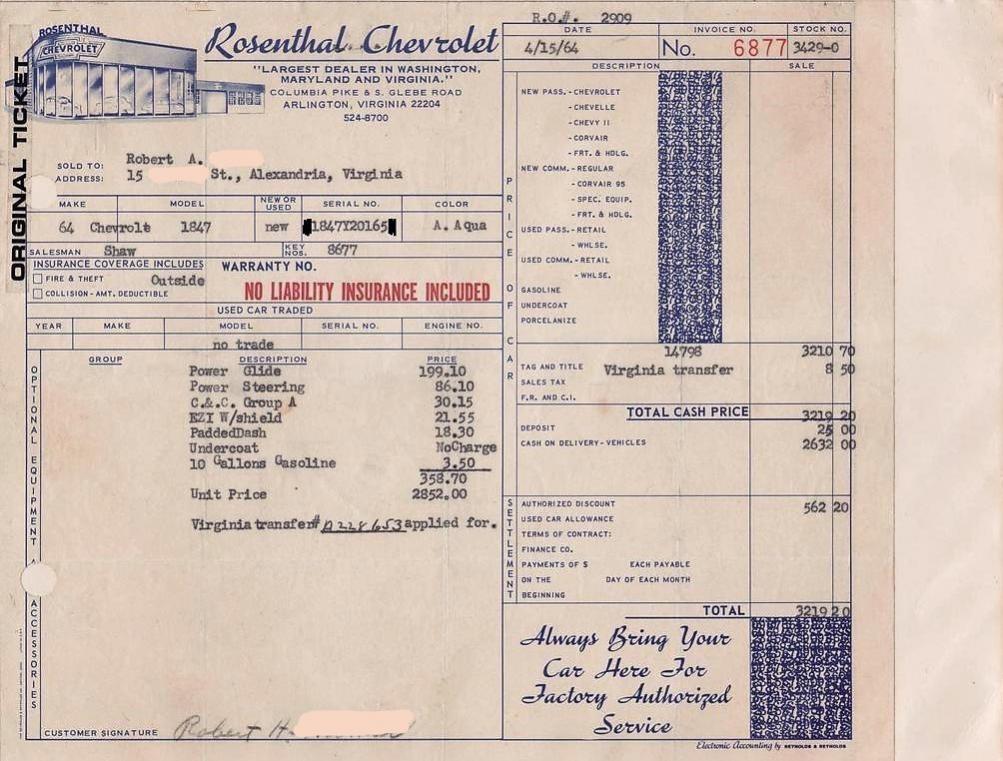 R.O.#. 2909
ORIGINAL TICKET
ROSENTHAL
CHEVROLET
Rosenthal Chevrolet
"LARGEST DEALER IN WASHINGTON,
MARYLAND AND VIRGINIA."
COLUMBIA PIKE & S. GLEBE ROAD
ARLINGTON, VIRGINIA 22204
524-8700
DATE INVOICE NO. STOCK NO.
4/15/64 No. 6877 3429-0
SOLD TO: Robert A.
ADDRESS: 15 St., Alexandria, Virginia
MAKE MODEL NEW OR USED SERIAL NO. COLOR
64 Chevrolet 1847 new 1847Y20165 A. Aqua
SALESMAN Shaw KEY NOS. 8677
INSURANCE COVERAGE INCLUDES WARRANTY NO.
FIRE & THEFT Outside
COLLISION - AMT. DEDUCTIBLE NO LIABILITY INSURANCE INCLUDED
USED CAR TRADED
YEAR MAKE MODEL SERIAL NO. ENGINE NO.
no trade
OPTIONAL EQUIPMENT
ACCESSORIES
GROUP DESCRIPTION PRICE
Power Glide 199.10
Power Steering 86.10
C.&.C. Group A 30.15
EZI W/shield 21.55
PaddedDash 18.30
Undercoat NoCharge
10 Gallons Gasoline 3.50
358.70
Unit Price 2852.00
Virginia transfer# D228653 applied for.
CUSTOMER SIGNATURE Robert H.
DESCRIPTION SALE
PRICE OF CAR
NEW PASS. - CHEVROLET
- CHEVELLE
- CHEVY II
- CORVAIR
- FRT. & HDLG.
NEW COMM. - REGULAR
- CORVAIR 95
- SPEC. EQUIP.
- FRT. & HDLG.
USED PASS. - RETAIL
- WHLSE.
USED COMM. - RETAIL
- WHLSE.
GASOLINE
UNDERCOAT
PORCELANIZE
14798 3210 70
TAG AND TITLE Virginia transfer 8 50
SALES TAX
F.R. AND C.I.
TOTAL CASH PRICE 3219 20
DEPOSIT 25 00
CASH ON DELIVERY - VEHICLES 2632 00
SETTLEMENT
AUTHORIZED DISCOUNT 562 20
USED CAR ALLOWANCE
TERMS OF CONTRACT:
FINANCE CO.
PAYMENTS OF $ EACH PAYABLE
ON THE DAY OF EACH MONTH
BEGINNING
TOTAL 3219 20
Always Bring Your
Car Here For
Factory Authorized
Service
Electronic Accounting by REYNOLDS & REYNOLDS